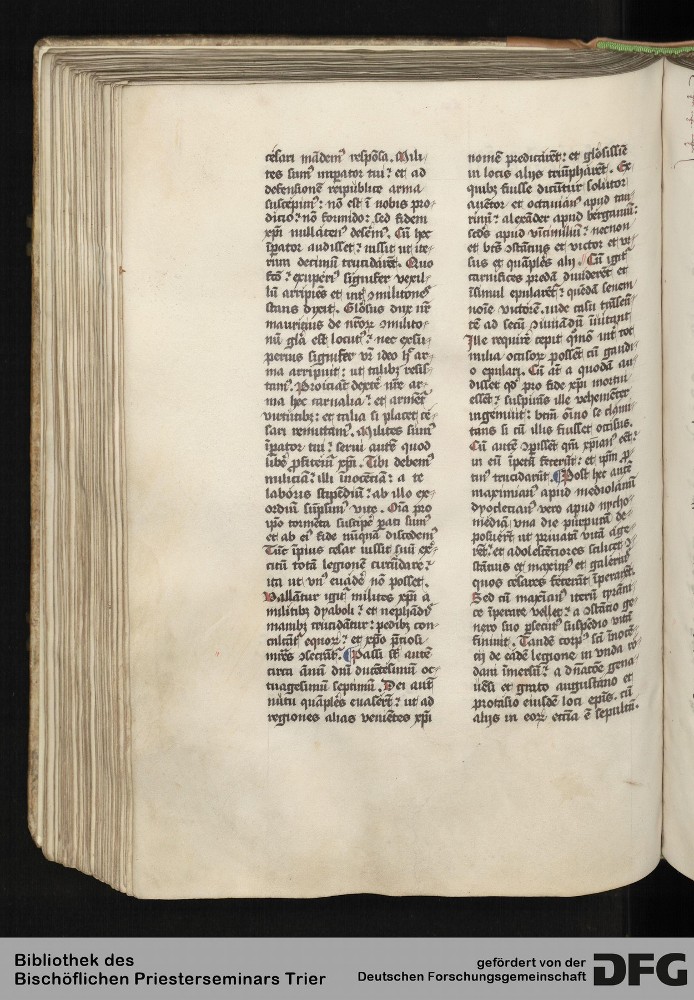 cesari mādem⁹ respōsa. Mili
tes sum⁹ imꝑator tui: et ad
defensionē reipublice arma
suscepim⁹: nō est ī nobis pro
dicio: nō formido: sed fidem
xp̄i nullaten⁹ deſem⁹. Cū hec
īꝑator audisset: iussit ut ite
rum decimū trucidarēt. Quo
fc̄o: exuperi⁹ signifer vexil
lū arripiēs et int̄ ꝯmilitones
stans dixit. Glōsus dux nr̄
mauricius de nr̄oꝝ ꝯmilito
nū glā est locut⁹: nec exsu
perius signifer vr̄ ideo h̄ ar
ma arripuit: ut talibꝫ resis
tam⁹. Proiciāt dextē nr̄e ar
ma hec carnalia: et armēt
virtutibꝫ: et talia si placet ce
sari remittam⁹. Milites sum⁹
īꝑator tui: serui autē quod
libē ꝓfitem⁹ xp̄i. Tibi debem⁹
miliciā: illi īnocētiā: a te
laboris stipēdiū: ab illo ex
ordiū sūpsim⁹ vite. Oīa pro
ip̄o tormēta suscipē ꝑati sum⁹
et ab ei⁹ fide nūqua discedem⁹
Tūc īpius cesar iussit suū ex̄
citū totā legionē circūdare:
ita ut vn⁹ euadē nō posset.
Vallātur igit̄ milites xp̄i a
militibꝫ dyaboli: et nephādis
manibꝫ trucidātur: pedibꝫ con
culcāt̄ equoꝝ: et xp̄o p̄ciosi
mr̄es ꝯsecrāt̄. Passi st̄ autē
circa ānū dn̄i ducētesimū oc
tuagesimū septimū. Dei aut̄
nutu quāplēs euaserūt: ut ad
regiones alias veniētes xp̄i
nomē predicarēt: et glōsissie
in locis alijs triūphārēt. Ex
quibꝫ fuisse dicūtur solutor
auētor et octauian⁹ apud tau
rinū: alexāder apud bergamū:
sc̄ds apud vītimiliū: necnon
et bt̄s ꝯstātius et victor et vr
sus et quāplēs alij. Cū igit̄
carnifices predā diuiderēt et
īsimul epularēt̄: quēdā senem
noīe victorē inde casu trāseū
tē ad secū ꝯuiuādū īuitāt
Ille requirē cepit qͦmō īnt̄ tot
milia occisoꝝ possēt cū gaudi
o epulari. Cū at̄ a quodā au
disset qd̄ pro fide xp̄i mortui
essēt: suspirās ille vehemēter
ingemuit: btm̄ oīno se clami
tans si cū illis fuisset occisus.
Cū autē ꝯpisset qm̄ xp̄ian⁹ eēt:
in eū īpetū fecerūt: et ip̄m ꝓ
tin⁹ trucidarūt. Post hec autē
maximian⁹ apud mediolanū
dyocletian⁹ vero apud nycho
mediā vna die purpurā de
posuerūt ut priuatā vitā age
rēt: et adolescētiores scilicet ꝯ
stātius et maxim⁹ et galerius
quos cesares fecerāt īperarēt.
Sed cū maxīan⁹ iterū tyrāni
ce īperare vellet: a ꝯstācio ge
nero suo ꝑsecut⁹ suspēdio vitā
finiuit. Tandē corp⁹ sc̄i īnocē
cij de eadē legione in vnda ro
dani īmersū: a dn̄acōe gena
uēsi et grato augustano et
protasio eiusdē loci epīs. cū
alijs in eoꝝ ecc̄ia ē sepultū.
Bibliothek des
Bischöflichen Priesterseminars Trier
gefördert von der
Deutschen Forschungsgemeinschaft
DFG